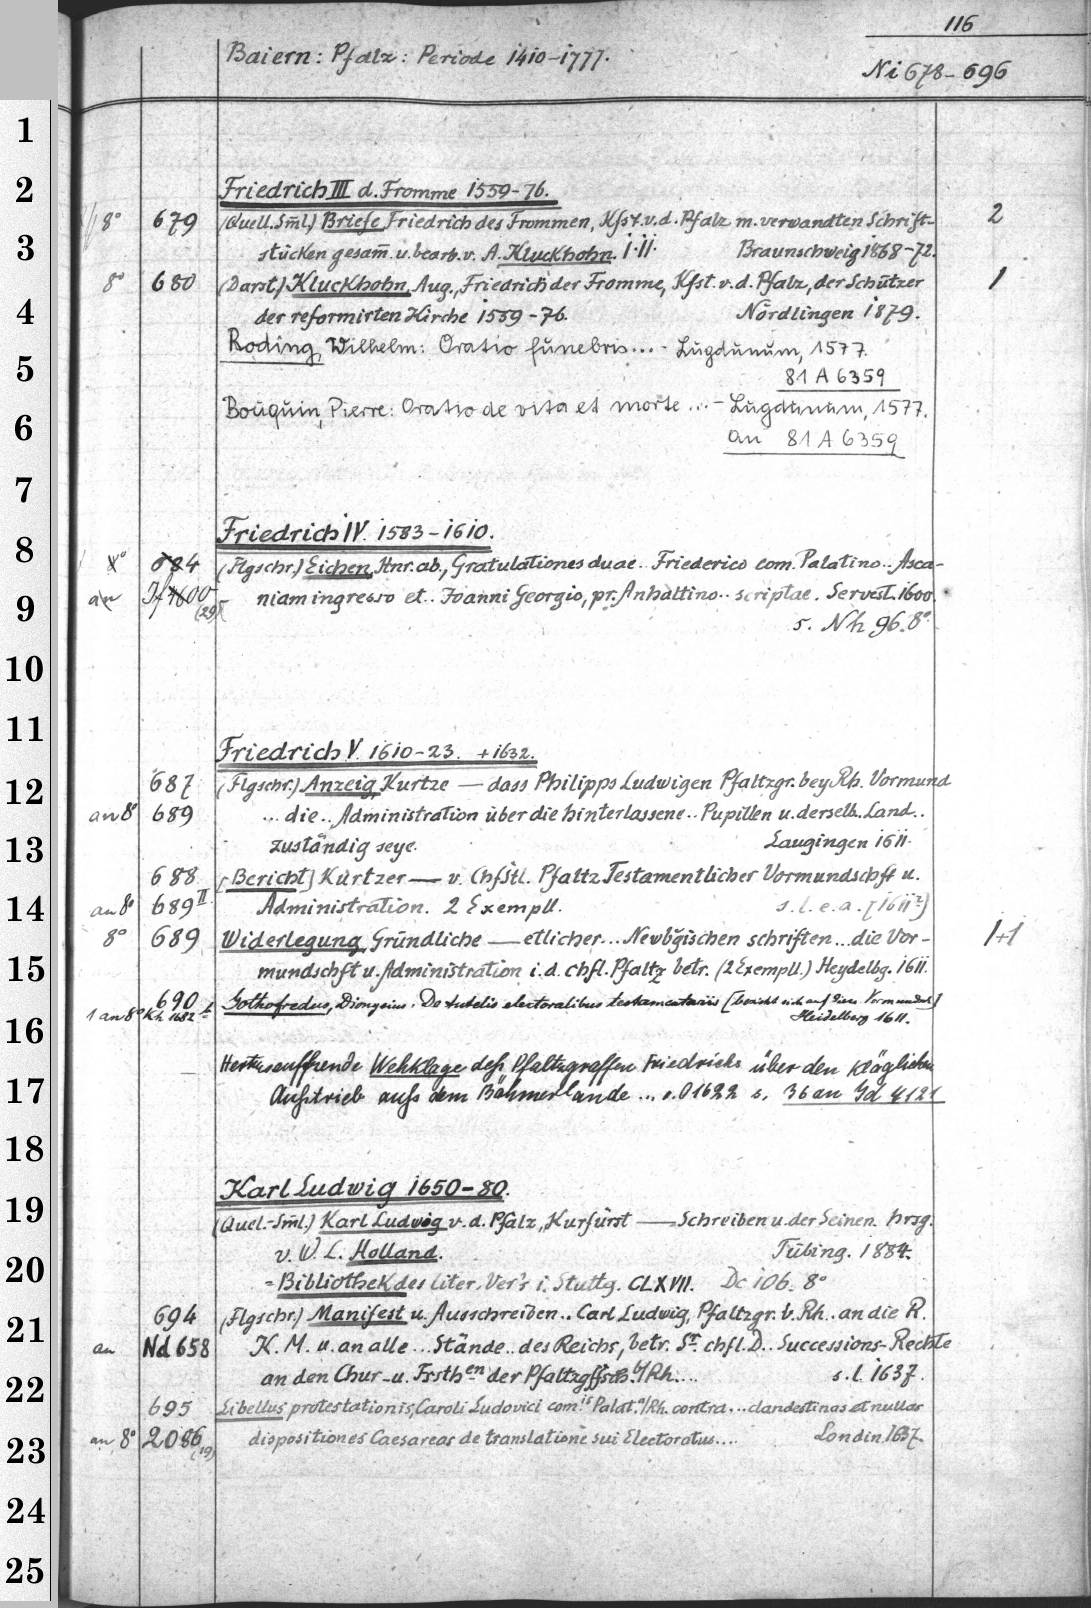 116
Baiern: Pfalz: Periode 1410-1777.
Ni 678-696
1
2
3
4
5
6
7
8
9
10
11
12
13
14
15
16
17
18
19
20
21
22
23
24
25
Friedrich III d. Fromme 1559-76.
8° 679 (Quell. Sm̄l.) Briefe Friedrich des Frommen, Kfst. v. d. Pfalz m. verwandten Schrift- 2
stücken gesam̄. u. bearb. v. A. Kluckhohn. I.II. Braunschweig 1868-72.
8° 680 (Darst.) Kluckhohn, Aug., Friedrich der Fromme, Kfst. v. d. Pfalz, der Schützer 1
der reformirten Kirche 1559-76. Nördlingen 1879.
Roding, Wilhelm: Oratio funebris... - Lugdunum, 1577.
81 A 6359
Bouquin, Pierre: Oratio de vita et morte ... - Lugdunum, 1577.
an 81 A 6359
Friedrich IV. 1583-1610.
684 (Flgschr.) Eichen, Hnr. ab, Gratulationes duae.. Friederico com. Palatino.. Asca-
an If 4600 (29) niam ingresso et.. Joanni Georgio, pr. Anhaltino.. scriptae. Servest. 1600.
s. Nh 96. 8°
Friedrich V. 1610-23. +1632.
687 (Flgschr.) Anzeig, Kurtze — dass Philipps Ludwigen Pfaltzgr. bey Rh. Vormund
an 8° 689 ... die.. Administration über die hinterlassene.. Pupillen u. derselb. Land..
zuständig seye. Laugingen 1611.
688 [Bericht] Kurtzer — v. Chfstl. Pfaltz Testamentlicher Vormundschft u.
an 8° 689 II Administration. 2 Exempll. s. l. e. a. [1611?]
8° 689 Widerlegung, Gründliche — etlicher... Newbg̃ischen schriften... die Vor- 1+1
mundschft u. Administration i. d. chfl. Pfaltz betr. (2 Exempll.) Heydelbg. 1611.
690 Gothofredus, Dionysius. De tutelis electoralibus testamentariis [bezieht sich auf diese Vormundsch.]
1 an 8° Kh 1682 Heidelberg 1611.
Wehklage deß Pfaltzgraffen Friedrichs über den kläglichen
Außtrieb auß dem Böhmerlande ... o.O 1622 s. 36 an Gd 4121
Karl Ludwig 1650-80.
(Quel.-Sm̄l.) Karl Ludwig v. d. Pfalz, Kurfürst — Schreiben u. der Seinen. hrsg.
v. W. L. Holland. Tübing. 1884.
= Bibliothek des liter. Ver's i. Stuttg. CLXVII. Dc 106. 8°
694 (Flgschr.) Manifest u. Ausschreiben.. Carl Ludwig, Pfaltzgr. b. Rh.. an die R.
an Nd 658 K. M. u. an alle... Stände.. des Reichs, betr. Sr. chfl. D.. Successions-Rechte
an den Chur- u. Frsthen der Pfaltzgffsch. b/Rh.... s. l. 1637.
695 Libellus protestationis, Caroli Ludovici comis Palat. a/Rh. contra... clandestinas et nullas
an 8° 2086 (19) dispositiones Caesareas de translatione sui Electoratus.... Londin. 1637.